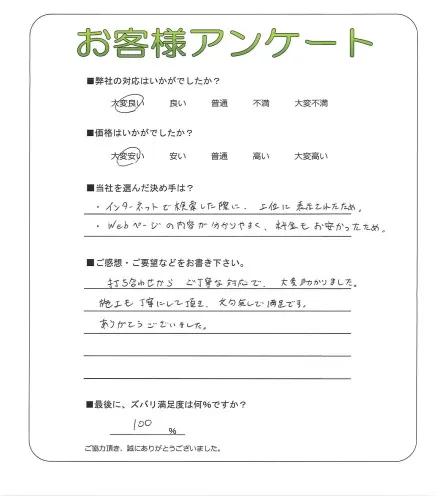 お客様アンケート
■弊社の対応はいかがでしたか？
大変良い 良い 普通 不満 大変不満
■価格はいかがでしたか？
大変安い 安い 普通 高い 大変高い
■当社を選んだ決め手は？
・インターネットで検索した際に、上位に表示されたため。
・Webページの内容が分かりやすく、料金もお安かったため。
■ご感想・ご要望などをお書き下さい。
打ち合わせから ご丁寧な対応で、大変助かりました。
施工も丁寧にして頂き、文句無しで満足です。
ありがとうございました。
■最後に、ズバリ満足度は何％ですか？
100 %
ご協力頂き、誠にありがとうございました。